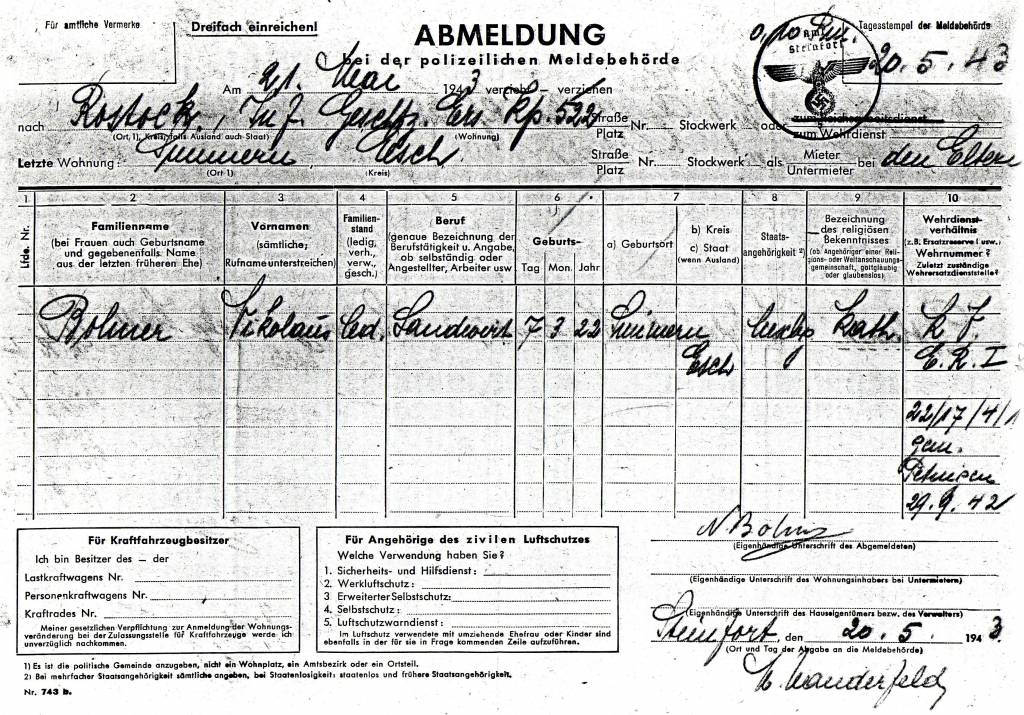 Für amtliche Vermerke
Dreifach einreichen!
ABMELDUNG
bei der polizeilichen Meldebehörde
Tagesstempel der Meldebehörde
Steinfort
20. 5. 43
Am 21. Mai 1943 verzieht – verziehen
nach Rostock, Inf. Ers. Kp. 522 Straße Platz Nr. Stockwerk oder zum Reichsarbeitsdienst zum Wehrdienst
(Ort, 1), Kreis, falls Ausland auch Staat) (Wohnung)
Letzte Wohnung: Esch Straße Platz Nr. Stockwerk als Mieter Untermieter bei den Eltern
(Ort 1) (Kreis)
1 2 3 4 5 6 7 8 9 10
Lfde. Nr.
Familienname
(bei Frauen auch Geburtsname
und gegebenenfalls. Name
aus der letzten früheren Ehe)
Vornamen
(sämtliche;
Rufname unterstreichen)
Familien-
stand
(ledig,
verh.,
verw.,
gesch.)
Beruf
(genaue Bezeichnung der
Berufstätigkeit u. Angabe,
ob selbständig oder
Angestellter, Arbeiter usw
Geburts-
Tag Mon. Jahr
a) Geburtsort
b) Kreis
c) Staat
(wenn Ausland)
Staats-
angehörigkeit 2)
Bezeichnung
des religiösen
Bekenntnisses
(ob Angehöriger einer Reli-
gions- oder Weltanschauungs-
gemeinschaft, gottgläubig
oder glaubenslos)
Wehrdienst-
verhältnis
(z.B. Ersatzreserve I usw.)
Wehrnummer?
Zuletzt zuständige
Wehrersatzdienststelle?
Bohmer Nikolaus led. Landwirt 7 3 22 Luxbg kath.
Esch E. R. I
22/17/4/1
29. 9. 42
Für Kraftfahrzeugbesitzer
Ich bin Besitzer des – der
Lastkraftwagens Nr.
Personenkraftwagens Nr.
Kraftrades Nr.
Meiner gesetzlichen Verpflichtung zur Anmeldung der Wohnungs-
veränderung bei der Zulassungsstelle für Kraftfahrzeuge werde ich
unverzüglich nachkommen.
Für Angehörige des zivilen Luftschutzes
Welche Verwendung haben Sie?
1. Sicherheits- und Hilfsdienst:
2. Werkluftschutz:
3 Erweiterter Selbstschutz:
4. Selbstschutz:
5. Luftschutzwarndienst:
Im Luftschutz verwendete mit umziehende Ehefrau oder Kinder sind
ebenfalls in der für sie in Frage kommenden Zeile aufzuführen.
(Eigenhändige Unterschrift des Abgemeldeten)
(Eigenhändige Unterschrift des Wohnungsinhabers bei Untermietern)
(Eigenhändige Unterschrift des Hauseigentümers bezw. des Verwalters)
Steinfort, den 20. 5. 1943.
(Ort und Tag der Abgabe an die Meldebehörde)
1) Es ist die politische Gemeinde anzugeben, nicht ein Wohnplatz, ein Amtsbezirk oder ein Ortsteil.
2) Bei mehrfacher Staatsangehörigkeit sämtliche angeben, bei Staatenlosigkeit: staatenlos und frühere Staatsangehörigkeit.
Nr. 743 b.